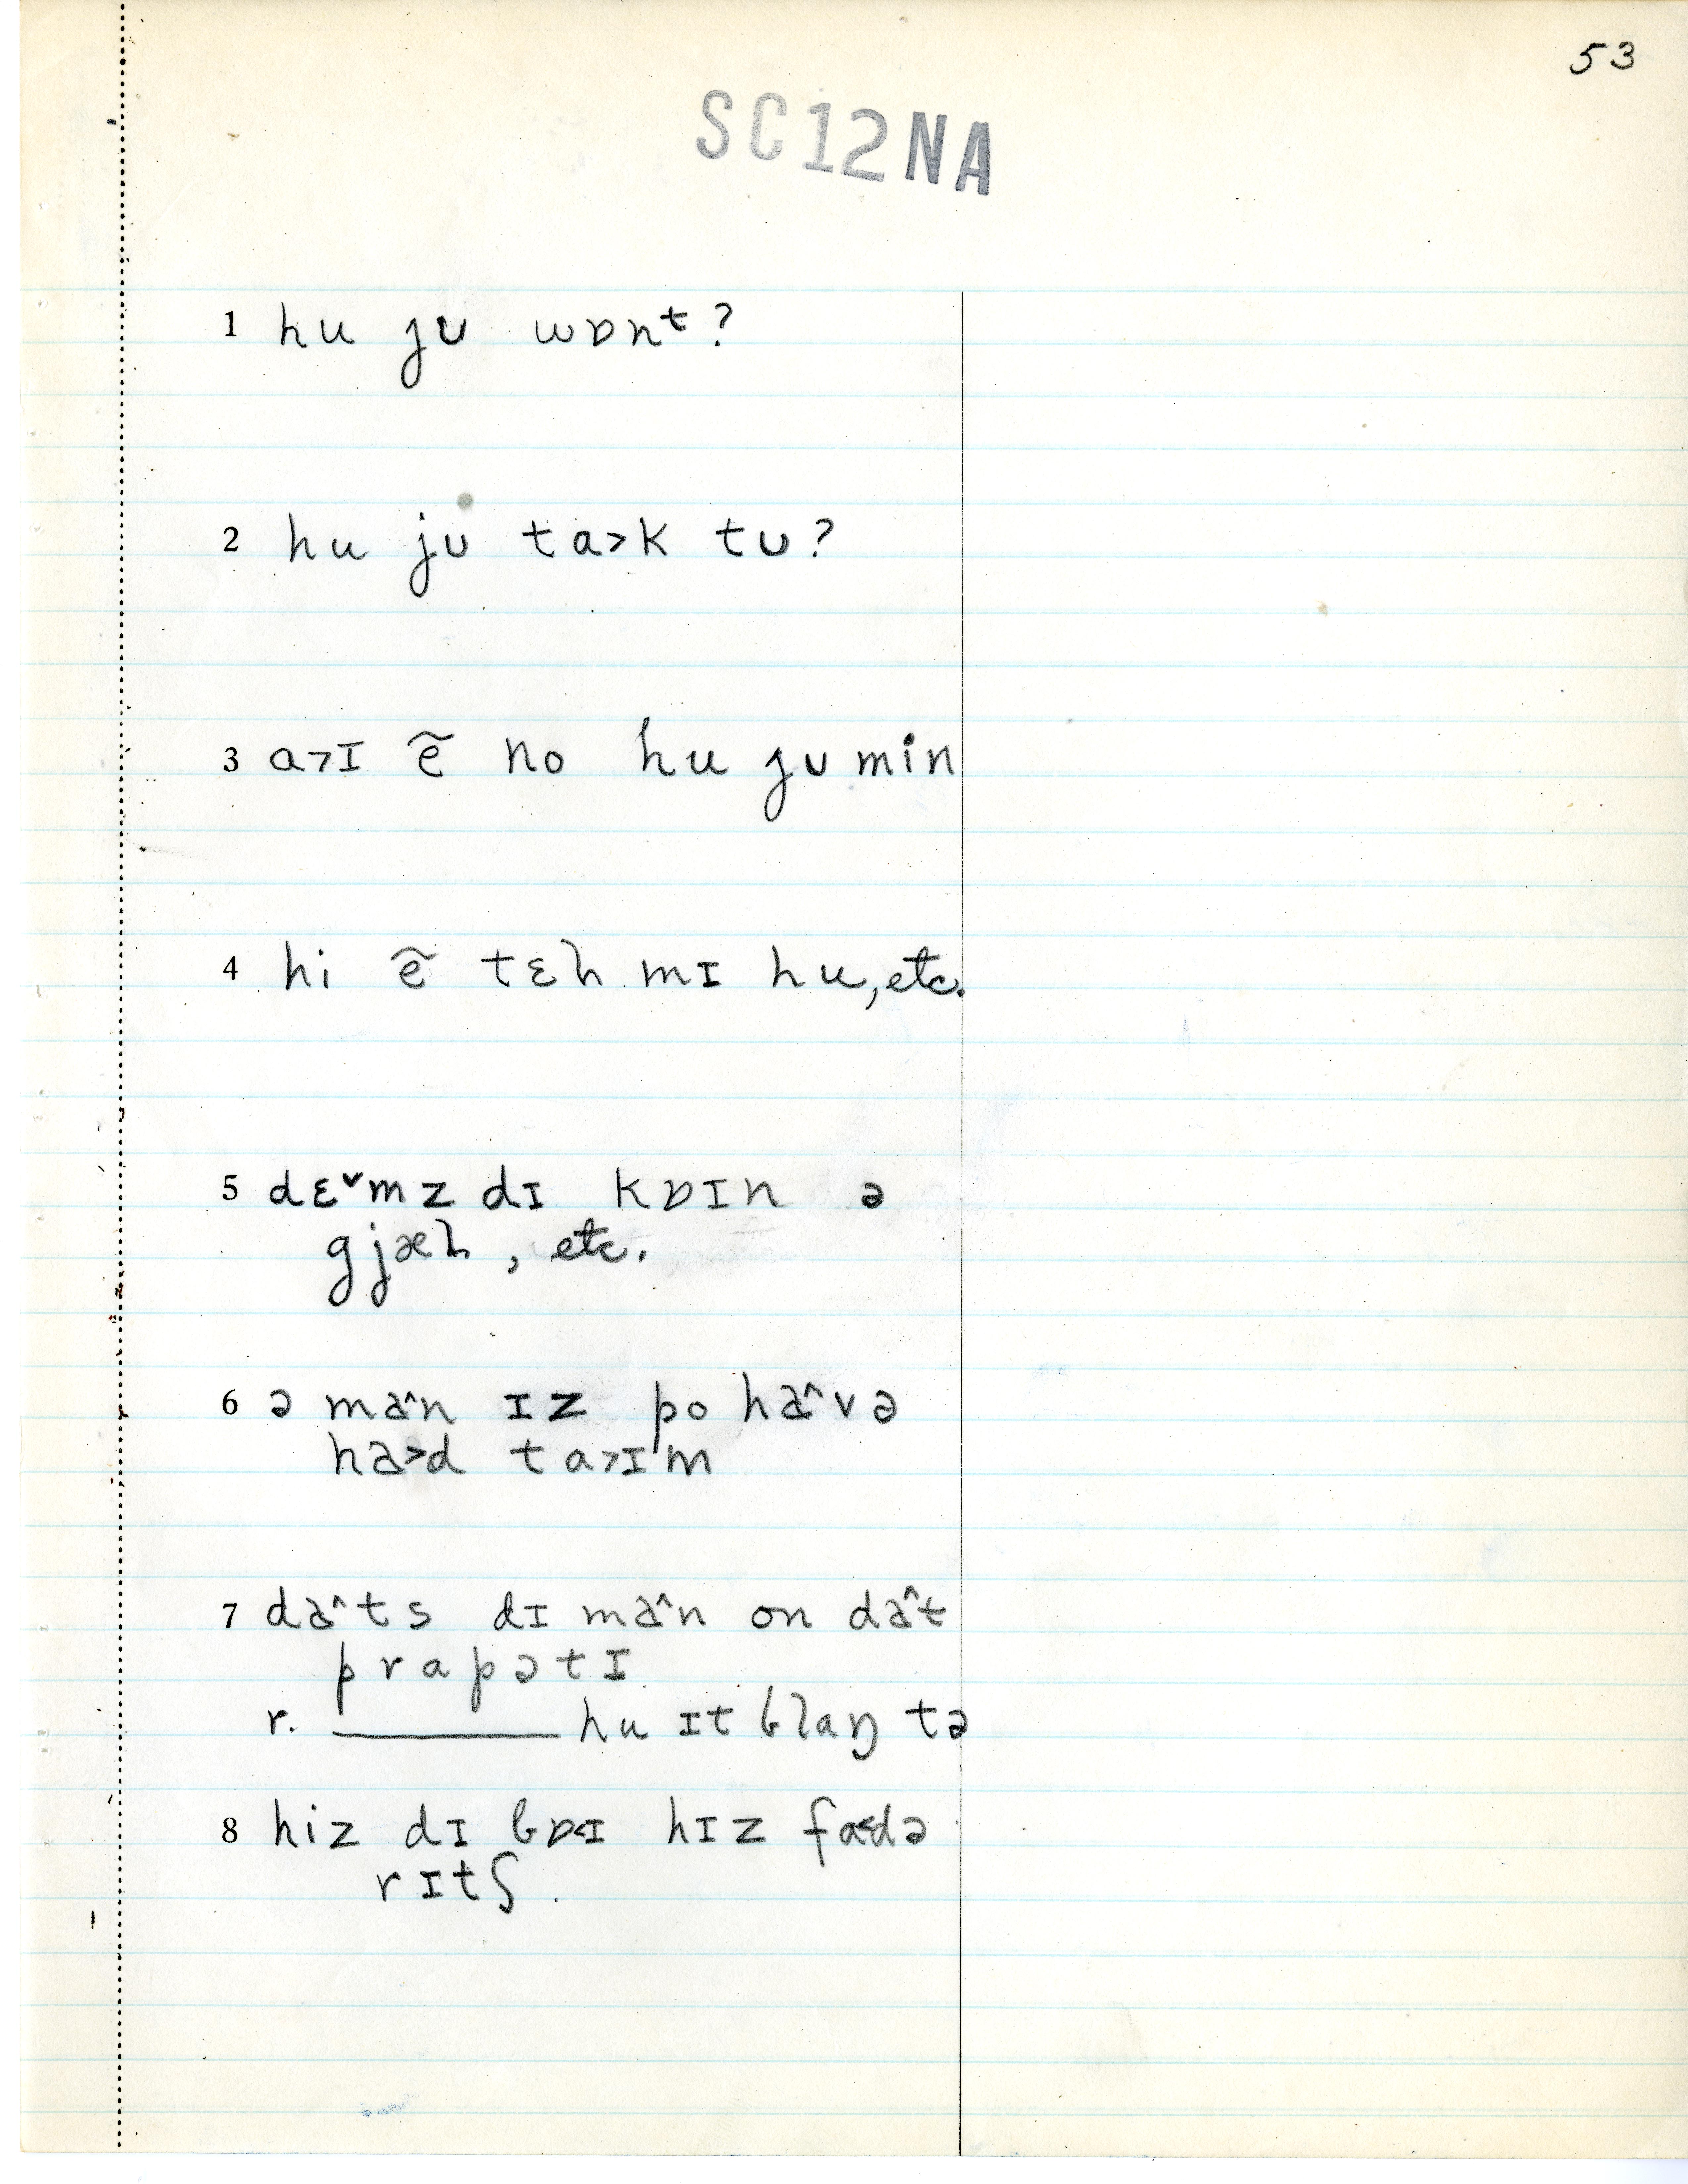 53
SC12NA
1 hu ju wɒnt?
2 hu jʊ ta>k tʊ?
3 a>ɪ ẽ no hu jʊ min
4 hi ẽ tɛl mɪ hu, etc.
5 dɛ˅mz dɪ kɒɪn ə
gjæl, etc.
6 ə ma^n ɪz po ha^və
ha>d ta>ɪm
7 da^ts dɪ ma^n on da^t
prapətɪ
r. ______ hu ɪt blaŋ tə
8 hiz dɪ bɒ<ɪ hɪz fa<də
rɪtʃ.